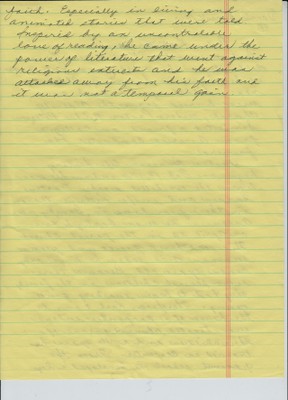 faith. Especially in living and
animated stories that were told
Inspired by an uncontrolable
love of reading, he came under the
power of literature that went against
religious extracts and he was
attacked away from his faith and
it was not a temporal gain